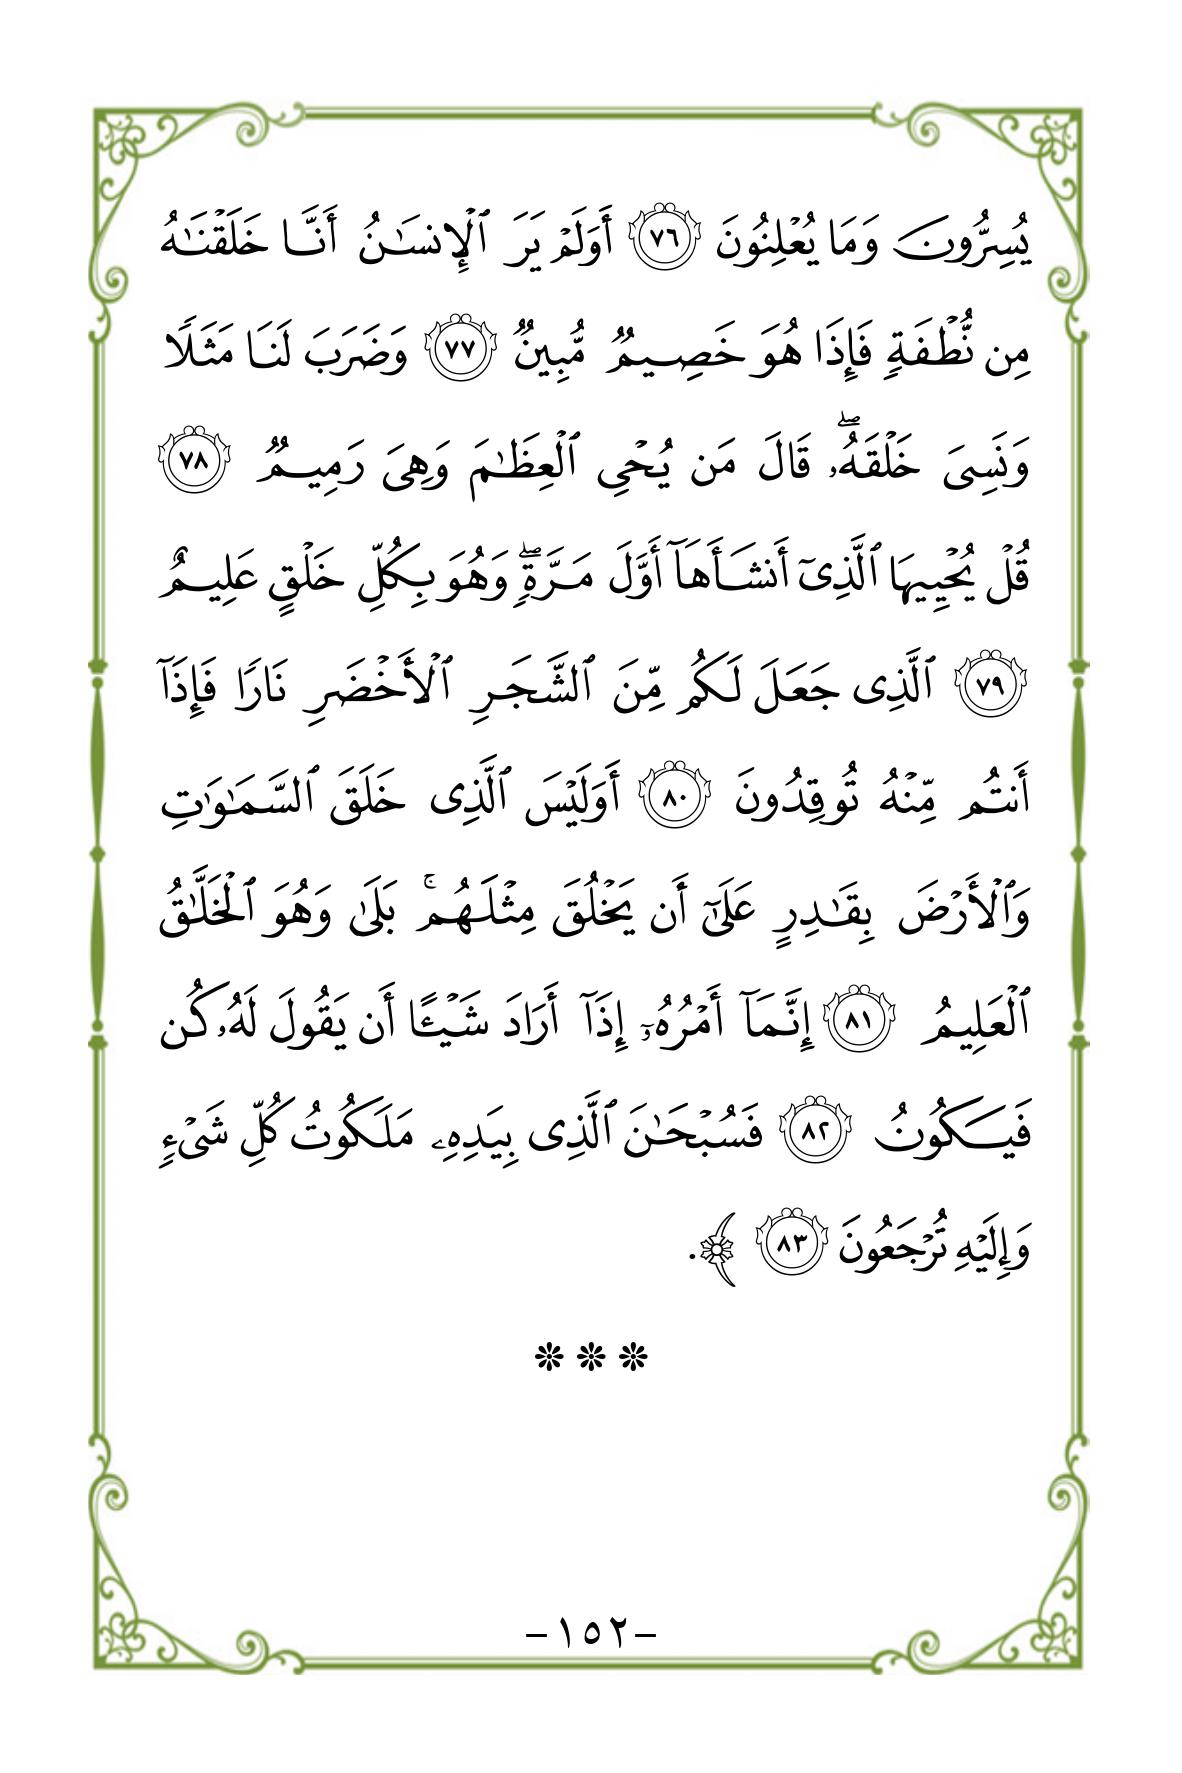 يُسِرُّونَ وَمَا يُعْلِنُونَ ٧٦ أَوَلَمْ يَرَ ٱلْإِنسَٰنُ أَنَّا خَلَقْنَٰهُ
مِن نُّطْفَةٍ فَإِذَا هُوَ خَصِيمٌ مُّبِينٌ ٧٧ وَضَرَبَ لَنَا مَثَلًا
وَنَسِىَ خَلْقَهُۥ ۖ قَالَ مَن يُحْىِ ٱلْعِظَٰمَ وَهِىَ رَمِيمٌ ٧٨
قُلْ يُحْيِيهَا ٱلَّذِىٓ أَنشَأَهَآ أَوَّلَ مَرَّةٍ ۖ وَهُوَ بِكُلِّ خَلْقٍ عَلِيمٌ
٧٩ ٱلَّذِى جَعَلَ لَكُم مِّنَ ٱلشَّجَرِ ٱلْأَخْضَرِ نَارًا فَإِذَآ
أَنتُم مِّنْهُ تُوقِدُونَ ٨٠ أَوَلَيْسَ ٱلَّذِى خَلَقَ ٱلسَّمَٰوَٰتِ
وَٱلْأَرْضَ بِقَٰدِرٍ عَلَىٰٓ أَن يَخْلُقَ مِثْلَهُم ۚ بَلَىٰ وَهُوَ ٱلْخَلَّٰقُ
ٱلْعَلِيمُ ٨١ إِنَّمَآ أَمْرُهُۥٓ إِذَآ أَرَادَ شَيْـًٔا أَن يَقُولَ لَهُۥ كُن
فَيَكُونُ ٨٢ فَسُبْحَٰنَ ٱلَّذِى بِيَدِهِۦ مَلَكُوتُ كُلِّ شَىْءٍ
وَإِلَيْهِ تُرْجَعُونَ ٨٣ ﴾.
❊ ❊ ❊
-١٥٢-